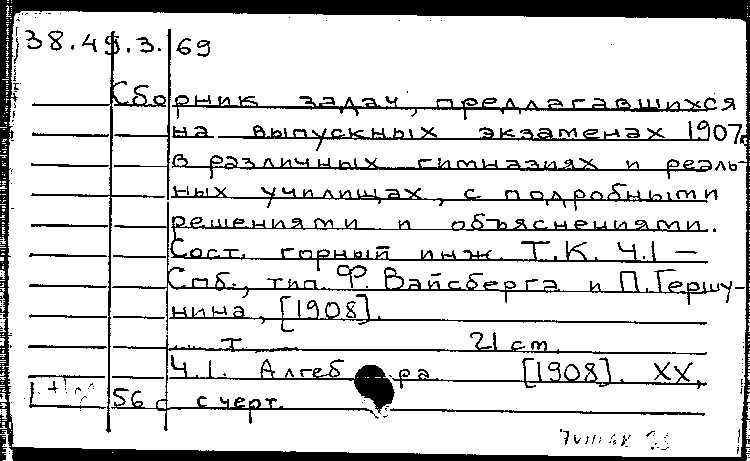 38.49.3.69
Сборник задач, предлагавшихся
на выпускных экзаменах 1907г.
в различных гимназиях и реаль-
ных училищах, с подробными
решениями и объяснениями.
Сост. горный инж. Т.К. Ч.1 –
Спб., тип. Ф. Вайсберга и П. Гершу-
нина, [1908].
т. 21 см.
Ч.1. Алгебра [1908]. XX,
56 с. с черт.